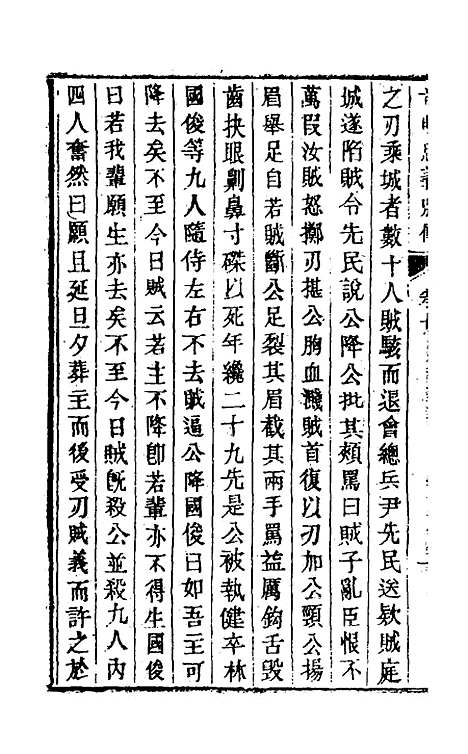 之刃乘城者數十人賊駭而退會總兵尹先民送欵賊庭
城遂陷賊令先民說公降公批其頰罵曰賊子亂臣恨不
萬叚汝賊怒擲刃揕公胸血濺賊首復以刃加公頸公揚
眉舉足自若賊斷公足裂其眉截其兩手罵益厲鉤舌毀
齒抉眼劓鼻寸磔以死年纔二十九先是公被執健卒林
國俊等九人隨侍左右不去賊逼公降國俊曰如吾主可
降去矣不至今日賊云若主不降卽若輩亦不得生國俊
曰若我輩願生亦去矣不至今日賊旣殺公並殺九人內
四人奮然曰願且延旦夕葬主而後受刃賊義而許之於